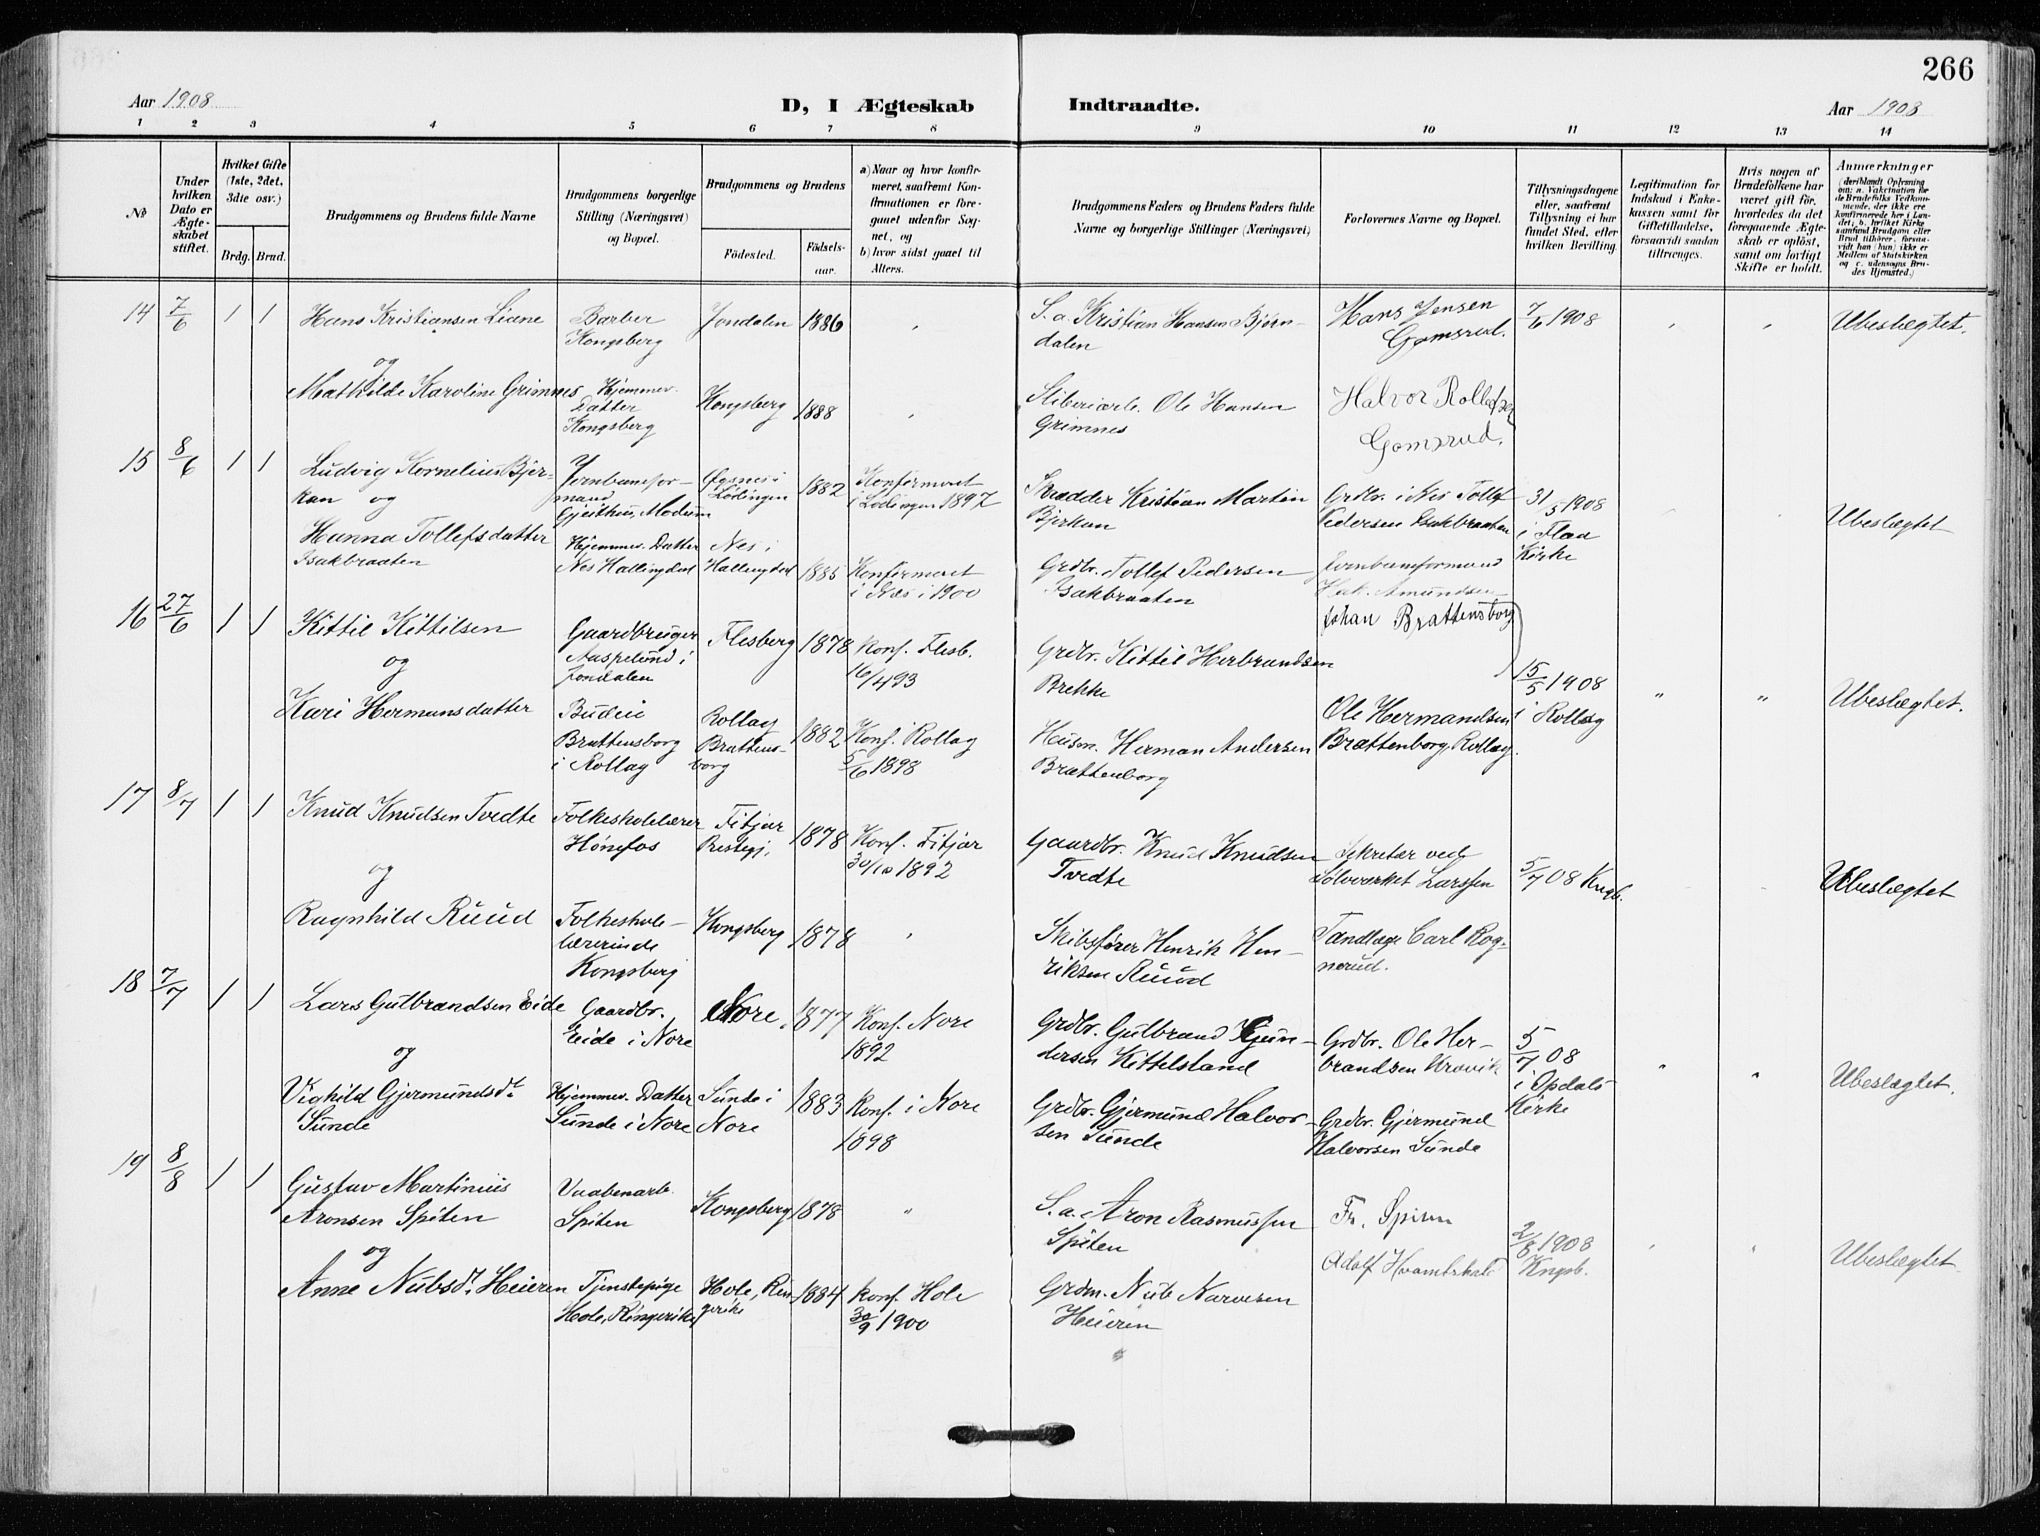 266
Aar 1908
D, I Ægteskab Indtraadte.
Aar 1908
1 2 3 4 5 6 7 8 9 10 11 12 13 14
№
Under hvilken Dato er Ægteskabet stiftet.
Hvilket Gifte (1ste, 2det, 3dte osv.)
Brdg. Brud.
Brudgommens og Brudens fulde Navne
Brudgommens borgerlige Stilling (Næringsvei) og Bopæl.
Brudgommens og Brudens
Födested.
Födsels-aar.
a) Naar og hvor konfirmeret, saafremt Konfirmationen er foregaaet udenfor Sognet, og
b) hvor sidst gaaet til Alters.
Brudgommens Faders og Brudens Faders fulde Navne og borgerlige Stillinger (Næringsvei)
Forlovernes Navne og Bopæl.
Tillysningsdagene eller, saafremt Tillysning ei har fundet Sted, efter hvilken Bevilling.
Legitimation for Indskud i Enkekassen samt for Giftetilladelse, forsaavidt saadan tiltrænges.
Hvis nogen af Brudefolkene har været gift för, hvorledes da det foregaaende Ægteskab er oplöst, samt om lovligt Skifte er holdt.
Anmærkninger
(deriblandt Oplysning om: a. Vakcination for de Brudefolks Vedkommende, der ikke ere konfirmerede her i Landet; b. hvilket Kirkesamfund Brudgom eller Brud tilhörer, forsaavidt han (hun) ikke er Medlem af Statskirken og c. udensogns Brudes Hjemsted.)
14 7/6 1 1 Hans Kristiansen Liane
Barber
Kongsberg
Jondalen 1886 "
S. a. Kristian Hansen Bjørndalen
Hans Jensen
Gomsrud.
7/6 1908 " " Ubeslegtet.
og
Mathilde Karoline Grimnes
Hjemmev.
Datter
Kongsberg
Kongsberg 1888 "
Ole Hansen
Grimnes
Halvor Rollefsen
Gomsrud.
15 8/6 1 1 Ludvig Kornelius Bjer-
kan og
Jernbanefor-
mand
Gjeithus, Modum
Lödingen
1882 Konfirmeret
i Lödingen 1897
Skrædder Kristian Martin
Bjerkan
Grdbr. i Nes Tollef
Pedersen Isakbraaten
31/5 1908
i Flaa
Kirke
Ubeslegtet
Hanna Tollefsdatter
Isakbraaten
Hjemmev. Datter
Nes Hallingdal
Nes i
Hallingdal
1885 Konfirmeret
i Næs i 1900
Grdbr. Tollef Pedersen
Isakbraaten
Jernbaneformand
Amundsen
16 27/6 1 1 Kittil Kittilsen
Gaardbruger
Aaspelund i
Jondalen
Flesberg 1878 Konf. Flesb.
16/4 93
Grdbr. Kittil Herbrandsen
Brekke
Johan Brattensborg
15/5 1908
i Rollag
" " Ubeslegtet.
og
Kari Hermansdatter
Budeie
Brattensborg
i Rollag
Rollag
Brattens-
borg
1882 Konf. Rollag
5/6 1898
Husm. Herman Andersen
Brattenborg
Ole Hermandsen
Brattenborg, Rollag.
17 8/7 1 1 Knud Knudsen Tvedte
Folkeskolelærer
Hönefos
Fitjar
Prestegj.
1878 Konf. Fitjar
30/10 1892
Gaardbr. Knud Knudsen
Tvedte
Sekretær ved
Sölvverket Larssen
5/7 08 Kngb.
Ubeslegtet
og
Ragnhild Ruud
Folkeskole-
lærerinde
Kongsberg
Kongsberg 1878 "
Skibsfører Henrik Hen-
riksen Ruud
Tandlæge Carl Rog-
nerud.
18 7/7 1 1 Lars Gulbrandsen Eide
Gaardbr.
Eide i Nore
Nore. 1877 Konf. Nore
1892
Grdbr. Gulbrand Gun-
dersen Kittelsland
Grdbr. Ole Her-
brandsen Kravik
5/7 08
i Opdals
Kirke
" " Ubeslegtet.
og
Vighild Gjermundsdt.
Sunde
Hjemmev. Datter
Sunde i Nore
Sunde i
Nore
1883 Konf. i Nore
1898
Grdbr. Gjermund Halvor-
sen Sunde
Grdbr. Gjermund
Halvorsen Sunde
19 8/8 1 1 Gustav Martinius
Aronsen Spiten
Vaabenarb.
Spiten
Kongsberg 1878 "
S. a. Aron Rasmussen
Spiten
Fr. Spiten
2/8 1908
Kngsb.
" " Ubeslegtet.
og
Anne Nubsdt. Heieren
Tjenestepige
Hole, Ringerike
Hole, Rin-
gerike
1884 Konf. Hole
30/9 1900
Grdm. Nub Narvesen
Heieren
Adolf